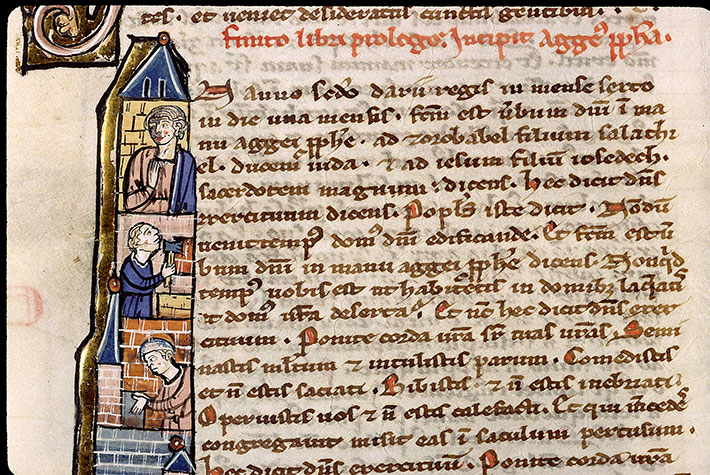 tes. et veniet desideratus cunctis gentibus.
finito libri prologo. Incipit aggeꝰ ꝓph̄a.
N anno scd̄o darii regis in mense sexto
in die una mensis. fc̄m est ūbum dn̄i ī ma
nu aggei ꝓph̄e. ad zorobabel filium salathi
el. ducem iuda. & ad iesum filiū iosedech.
sacerdotem magnum. dicens. hec dicit dn̄s
exercituum dicens. Popl̄s iste dicit. Nondū
venit tempꝰ domꝰ dn̄i edificande. Et fc̄m est ū
bum dn̄i in manu aggei ꝓph̄e dicens. Nonqͥd
tempꝰ vobis est ut habitetis in domibꝫ laq̄atis
et domꝰ ista deserta. Et nc̄ hec dicit dn̄s exer
cituum. Ponite corda vr̄a sr̄ vias vr̄as. Semi
nastis ml̄tum & intulistis parum. Comedistis
et n̄ estis saciati. Bibistis. & n̄ estis inebriati.
Operuistis vos & n̄ estis calefacti. Et qui mcedeˢ
congregavit misit eas ī saculum pertusum.
hec dicit dn̄s exercituum. Ponite corda vr̄a